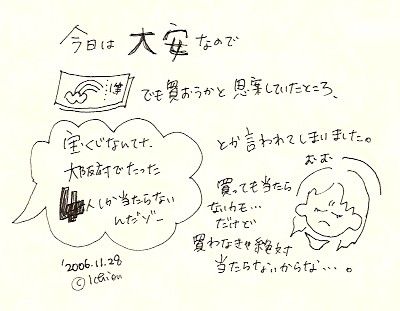 今日は 大安 なので
でも買おうかと思案していたところ、
宝くじなんてナ
大阪府でたった
4人しか当たらない
んだゾー
とか言われてしまいました。
むむ
買っても当たら
ないカモ…
だけど
買わなきゃ絶対
当たらないからな…。
'2006.11.28
© Ichion